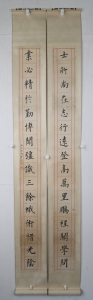 士所尚在志行遠登高萬里鵬程關學問
業必精於勤博聞強識三餘蛾術惜光陰